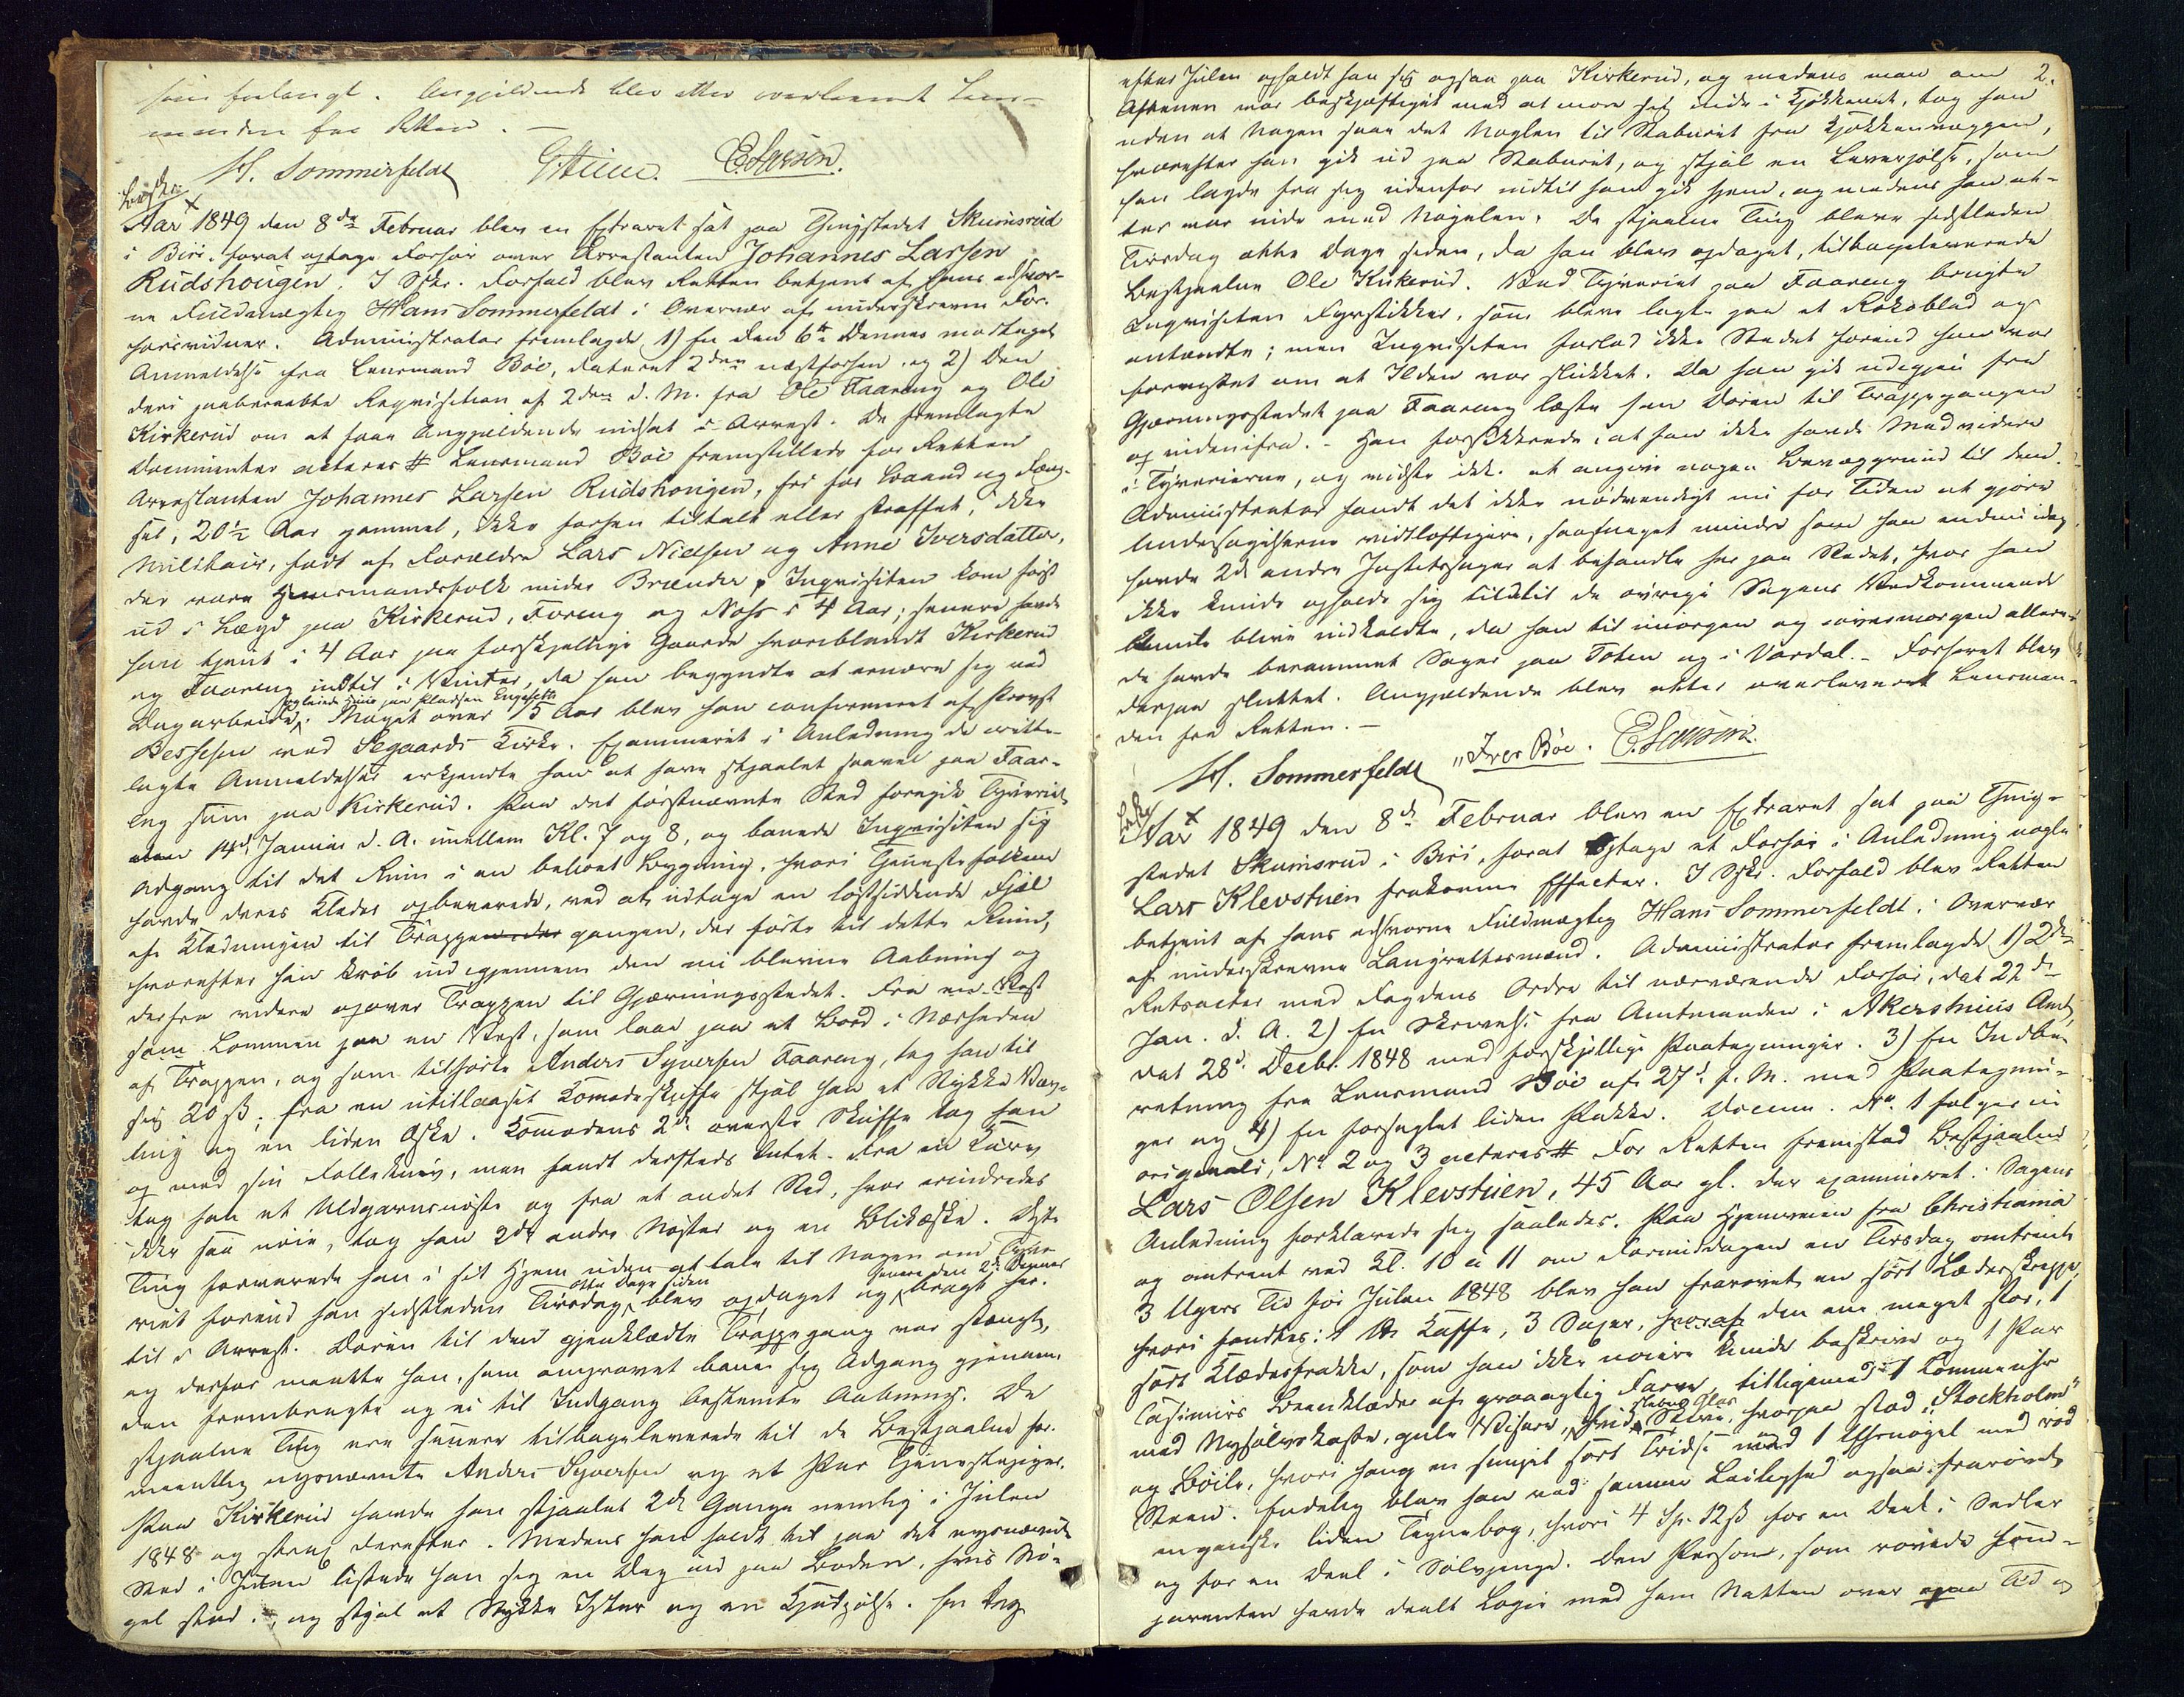 som forlangt. Angjældende blev atter overleveret Lens-
manden fra Retten. —
H. Sommerfeldt E. Larsen.
Aar 1849 den 8de Februar blev en Extraret sat paa Thingstedet Skumsrud
i Biri, forat optage Forhør over Arrestanten Johannes Larsen
Rudshougen. I Sskr. Forfald blev Retten betjent af hans edsvor-
ne Fuldmægtig Hans Sommerfeldt i Overvær af underskrevne For-
hørsvidner. Administrator fremlagde 1) En den 6te dennes modtagen
Anmeldelse fra Lensmand Böe, dateret 2den næstforhen og 2) Den
deri paaberaabte Reqvisition af 2den d. M. fra Ole Faareng og Ole
Kirkerud om at faae Angjældende indsat i Arrest. De fremlagte
Documenter acteres # Lensmand Böe fremstillede for Retten
Arrestanten Johannes Larsen Rudshougen, fri for Baand og Fæng-
sel, 20½ Aar gammel, ikke forhen tiltalt eller straffet, ikke
Militair, født af Forældre Lars Nielsen og Anne Iversdatter,
der vare Huusmandsfolk under Brænder. Inqvisiten kom først
ud i Lægd paa Kirkerud, Foreng og Noss i 4 Aar; senere havde
han tjent i 4 Aar paa forskjellige Gaarde hvoriblandt Kirkerud
og Faareng indtil i Vinter, da han begyndte at ernære sig ved
og leiede Huus paa Pladsen Engesette
Dagarbeide. Noget over 15 Aar blev han confirmeret af Provst
Bessesen ved Segaards Kirke. Examineret i Anledning de irette-
lagte Anmeldelser erkjendte han at have stjaalet saavel paa Faar-
eng som paa Kirkerud. Paa det førstnævnte Sted foregik Tyveriet
den 14de Januar d. A. mellem Kl. 7 og 8, og banede Inqvisiten sig
Adgang til det Rum i en beboet Bygning, hvori Tjenestefolkene
havde deres Klæder opbevarede, ved at udtage en løstsiddende Fjæl
af Klædningen til Trappegangen, der førte til dette Rum,
hvorefter han krøb ind igjennem den nu blevne Aabning og
derfra videre opover Trappen til Gjærningsstedet. Fra en Vest
som Lommen paa en Vest, som laae paa et Bord i Nærheden
af Trappen, og som tilhørte Anders Syversen Faareng, tog han til
sig 20 ß; fra en utillaaset Komodeskuffe stjal han et Stykke Væv-
ling og en liden Æske. Komodens 2de øverste Skuffe tog han
op med sin Follekniv, men fandt dersteds Intet. Fra en Kurv
tog han et Uldgarnsnøste og fra et andet Sted, hvor erindredes
ikke saa nøie, tog han 2de andre Nøster og en Blikæske. Disse
Ting forvarede han i sit Hjem uden at tale til Nogen om Tyve-
otte Dage siden senere den 2de dennes
riet forend han sidstleden Tirsdag blev opdaget og bragt her-
til i Arrest. Døren til den gjenklædte Trappegang var stængt,
og derfor maatte han, som anprøvet bane sig Adgang gjennem
den frembragte og ei til Indgang bestemte Aabning. De
stjaalne Ting ere senere tilbageleverede til de Bestjaalne for-
mentlig nysnævnte Anders Syversen og et Par Tjenestepiger.
Paa Kirkerud havde han stjaalet 2de Gange nemlig i Julen
1848 og strax derefter. Medens han holdt til paa det nysnævnte
Sted i Julen listede han sig en Dag ud paa Boden, hvis Nø-
gel stod i, og stjal et Stykke Ister og en Kjødpølse. En Dag
2.
efter Julen opholdt han sig ogsaa paa Kirkerud, og medens man om
Aftenen var beskjæftiget med at more sig inde i Kjøkkenet, tog han
uden at Nogen saae det Nøglen til Staburet fra Kjøkkenvæggen,
hvorefter han gik ud paa Staburet, og stjal en Leverpølse, som
han lagde fra sig udenfor indtil han gik hjem, og medens han at-
ter var inde med Nøgelen. De stjaalne Ting bleve sidstleden
Tirsdag otte Dage siden, da han blev opdaget, tilbageleverede
Bestjaalne Ole Kirkerud. Ved Tyveriet paa Faareng brugte
Inqvisiten Fyrstikker, som bleve lagte paa et Kakeblad og
antændte; men Inqvisiten forlod ikke Stedet forend han var
forvisset om at Ilden var slukket. Da han gik udigjen fra
Gjerningsstedet paa Faareng læste han Døren til Trappegangen
op indenifra. – Han forsikkrede, at han ikke havde Medvidere
i Tyverierne, og vidste ikke at angive nogen Bevæggrund til dem.
Administrator fandt det ikke nødvendigt nu for Tiden at gjøre
Undersøgelserne vidtløftigere, saameget mindre som han endnu idag
havde 2de andre Justitssager at behandle her paa Stedet, hvor han
ikke kunde opholde sig tilstil de øvrige Sagens Vedkommende
kunde blive indkaldte, da han til imorgen og iovermorgen allere-
de havde berammet Sager paa Toten og i Vardal. – Forhøret blev
derpaa sluttet. Angjældende blev atter overleveret Lensman-
den fra Retten. —
H. Sommerfeldt "Iver Böe. E. Larsen.
Aar 1849 den 8de Februar blev en Extraret sat paa Thing-
stedet Skumsrud i Biri, forat optage et Forhør i Anledning nogle
Lars Klevstuen frakomne Effecter. I Sskr. Forfald blev Retten
betjent af hans edsvorne Fuldmægtig Hans Sommerfeldt i Overvær
af underskrevne Laugrettesmænd. Administrator fremlagde 1) 2de
Retsacter med Fogdens Ordre til nærværende Forhør, dat 22de
Jan. d. A. 2) En Skrivelse fra Amtmanden i Akershuus Amt,
dat 28de Decbr. 1848 med forskjellige Paategninger. 3) En Indbe-
retning fra Lensmand Böe af 27de f. M. med Paategnin-
ger og 4) En forseglet liden Pakke. Docum. No. 1 følger in
originali, No. 2 og 3 acteres # For Retten fremstod Bestjaalne
Lars Olsen Klevstuen, 45 Aar gl. der examineret i Sagens
Anledning forklarede sig saaledes. Paa Hjemveien fra Christiania
og omtrent ved Kl. 10 à 11 om Formiddagen en Tirsdag omtrent
3 Ugers Tid før Julen 1848 blev han frarøvet en sort Læderskreppe,
hvori fandtes: 1 ℔ Kaffe, 3 Saxer, hvoraf den ene meget stor, 1
sort Klædesfrakke, som han ikke nøiere kunde beskrive og 1 Par
Casimirs Beenklæder af graaagtig Farve, tilligemed 1 Lommeuhr
med Nysølvskasse, gule Visere, hvid Skive, hvorpaa stod "Stockholm"
og Bøile, hvori hang en simpel sort Tridse med 1 Uhrnøgel med rød
Steen. Endelig blev han ved samme Leilighed ogsaa frarøvet
en ganske liden Tegnebog, hvori 4 Sp. 12 ß for en Deel i Sedler
og for en Deel i Sølvpenge. Den Person, som røvede Com-
parenten havde deelt Logie med ham Natten over